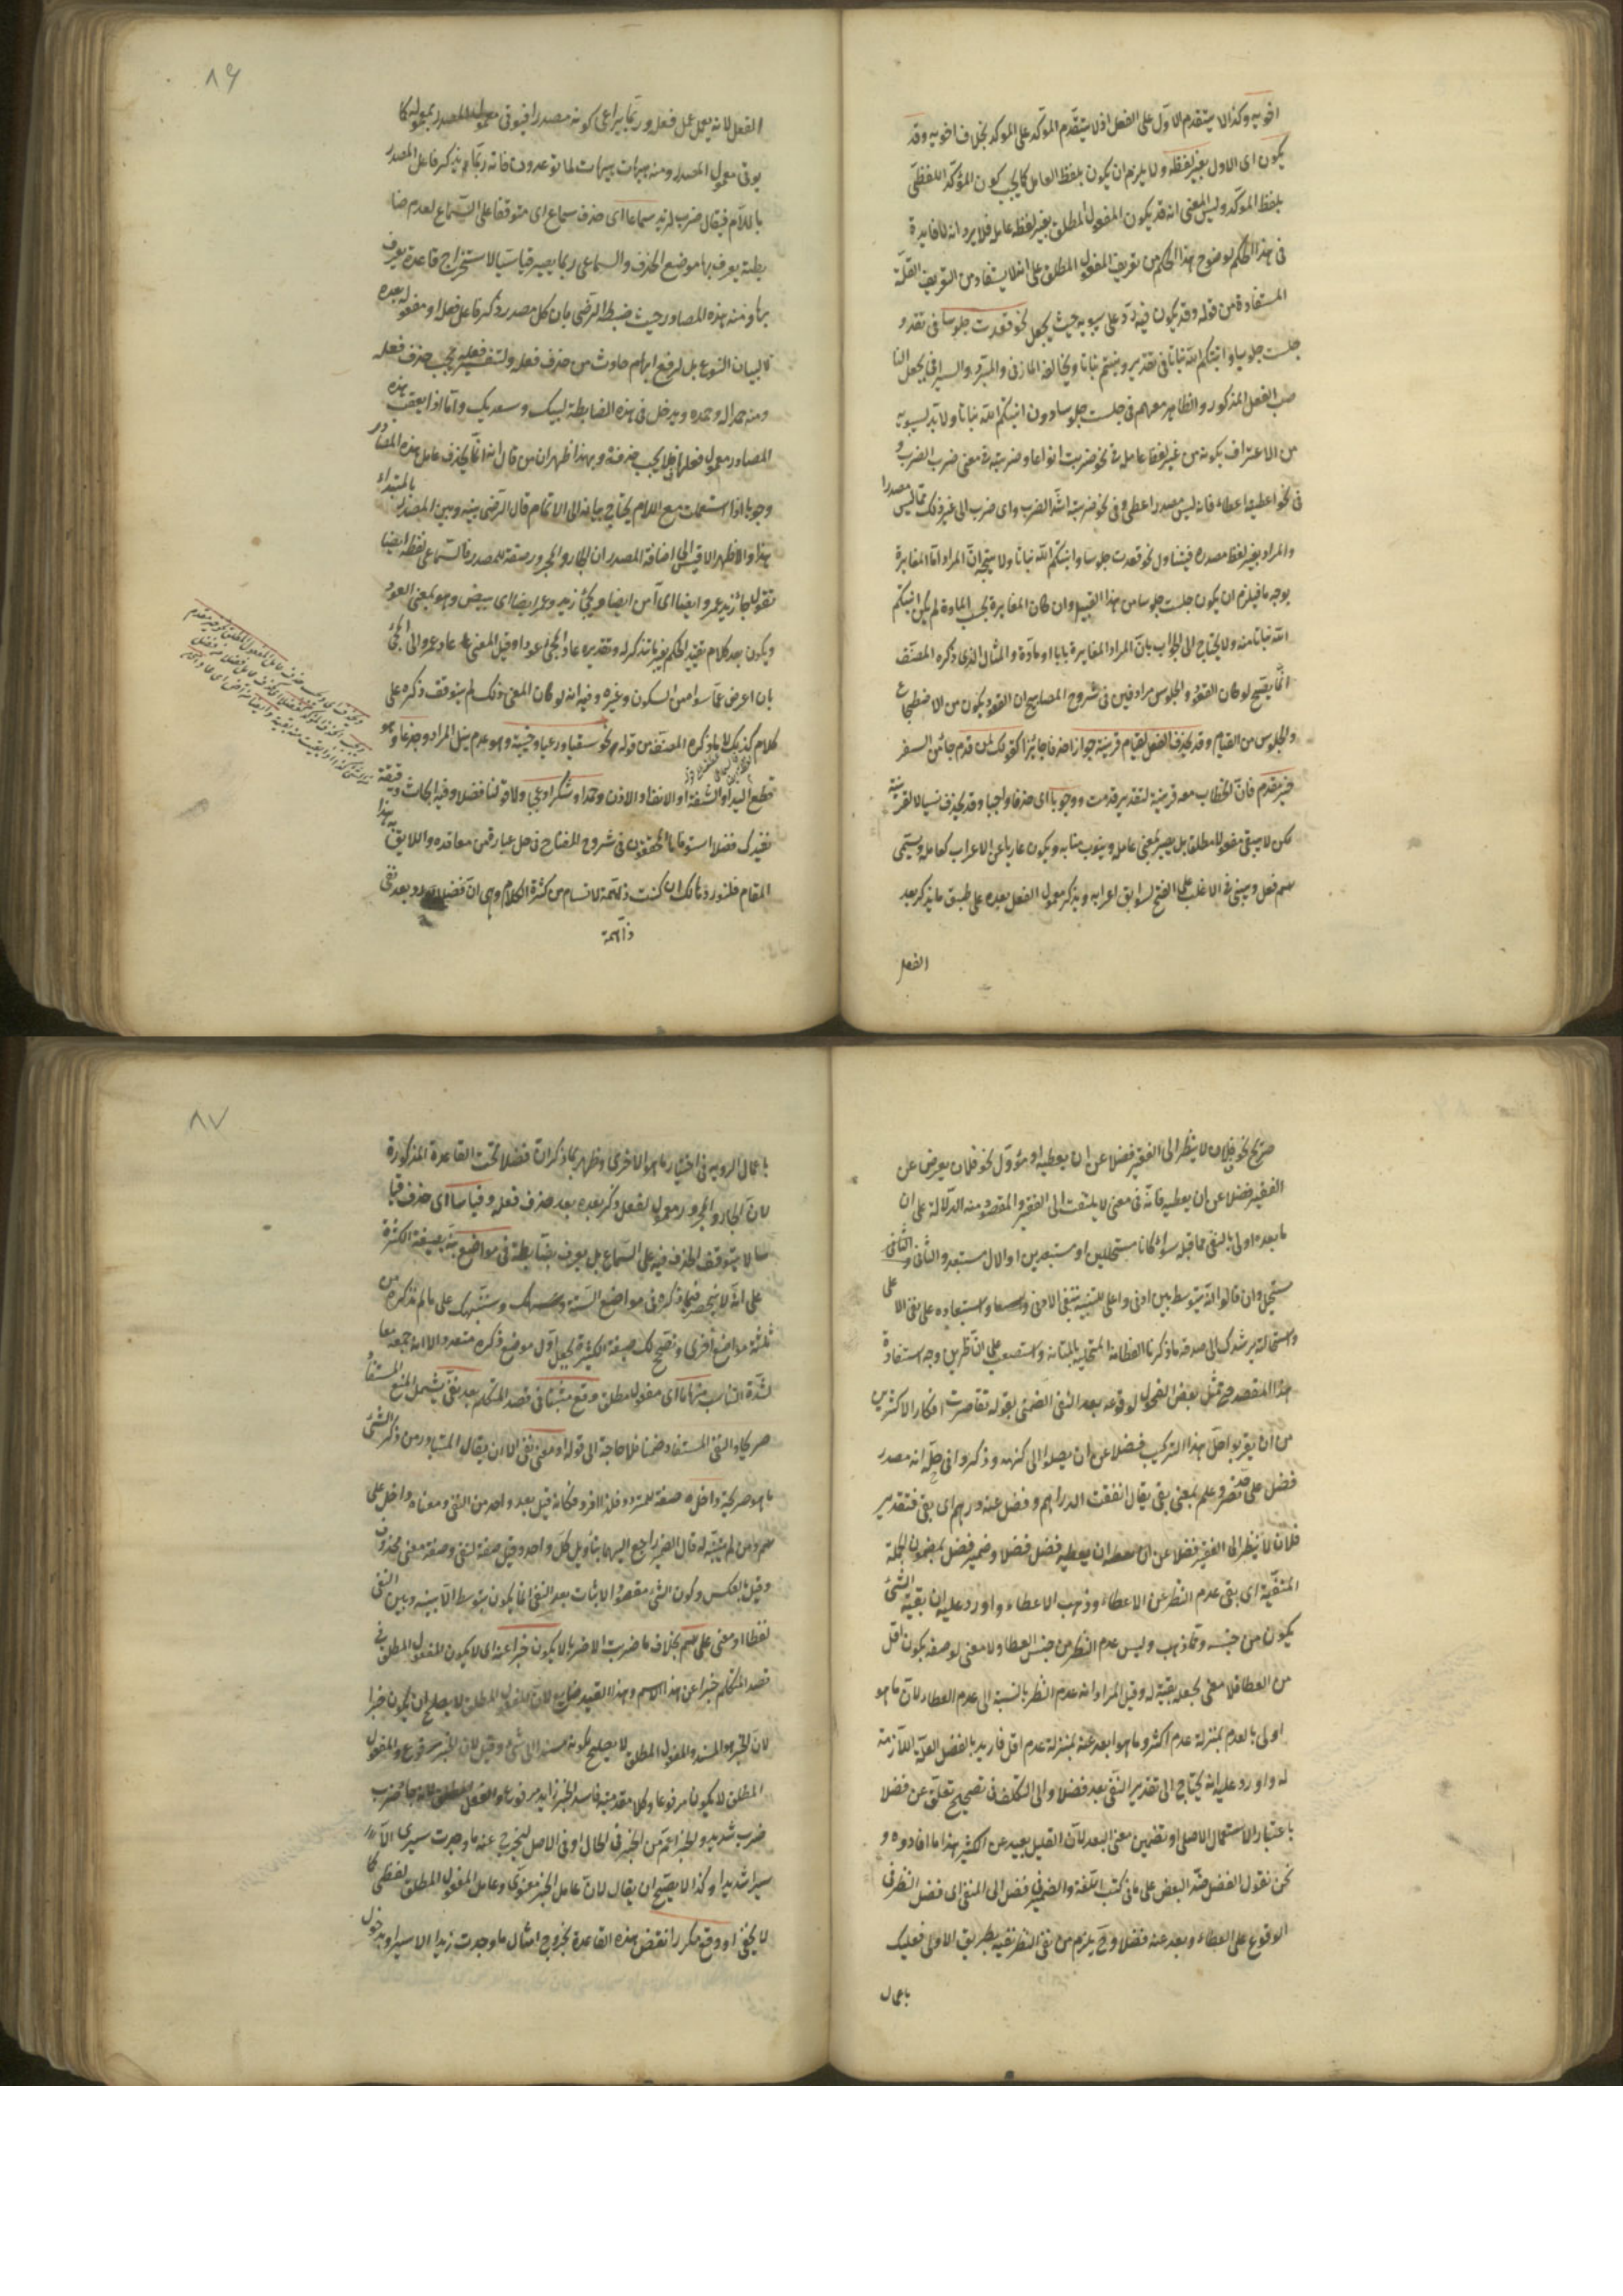 اخويه وكذا لا يتقدم الاول على الفعل اذ لا يتقدم المؤكد على المؤكد بخلاف اخويه وقد
يكون اى الاول بغير لفظه ولا يلزم ان يكون بلفظ العامل كما يجب كون المؤكد اللفظى
بلفظ المؤكد وليس المعنى انه قد يكون المفعول المطلق بغير لفظ عامله فلا يرد انه لا فايدة
فى هذا الحكم لوضوح هذا الحكم من تعريف المفعول المطلق على انه لا يستفاد من التعريف القلة
المستفادة من قوله وقد يكون فيه رد على سيبويه حيث يجعل نحو قعدت جلوسا فى تقدير
جلست جلوسا وانبتكم الله نباتا فى تقدير ونبتم نباتا ويخالفه المازنى والمبرد والسيرافى بجعل النا
صب الفعل المذكور والظاهر معهم فى جلست جلوسا دون انبتكم الله نباتا ولا بد لسيبويه
من الاعتراف بكونه من غير لفظ عامله فى نحو ضربت انواعا وضربته فى معنى ضرب الضرب و
فى نحو اعطيته اعطاء فانه ليس مصدر اعطى وفى نحو ضربته اشد الضرب واى ضرب الى غير ذلك مما ليس مصدرا
والمراد بغير لفظ مصدره فيتناول نحو قعدت جلوسا وانبتكم الله نباتا ولا يتجه ان المراد اما المغايرة
بوجه ما فيلزم ان يكون جلست جلوسا من هذا القبيل وان كان المغايرة بحسب المادة لم يكن انبتكم
الله نباتا منه ولا يحتاج الى الجواب بان المراد المغايرة بابا او مادة والمثال الذى ذكره المصنف
انما يصح لو كان القعود والجلوس مرادفين فى شروح المصابيح ان القعود يكون من الاضطجاع
والجلوس من القيام وقد يحذف الفعل لقيام قرينة جوازا حذفا جائزا كقولك لمن قدم جائى من السفر
خير مقدم فان الخطاب معه قرينة لتقدير قدمت ووجوبا اى حذفا واجبا وقد يحذف نسيا لا لقرينة
لكن لا يبقى مفعولا مطلقا بل يصير بمعنى عامله وينوب منابه ويكون عاريا عن الاعراب كعامله ويسمى
اسم فعل ويبنى فى الاغلب على الفتح لسوابق اعرابه ويذكر معمول الفعل بعده على طبق ما يذكر بعد
الفعل
٨٦
الفعل لانه يعمل عمل فعله وربما يراعى كونه مصدرا فيوتى معمول المصدر بمعموله كما
يوتى معمول المصدر ومنه هيهات هيهات لما توعدون فانه ربما يذكر فاعل المصدر
باللام فيقال ضرب لزيد سماعا اى حذف سماع اى متوقفا على السماع لعدم ضا
بطة يعرف بها موضع الحذف والسماعى ربما يصير قياسيا لاستخراج قاعدة يعرف
بها ومنه هذه المصادر حيث ضبط الرضى بان كل مصدر ذكر فاعل فعله او مفعوله بعده
لا لبيان النوع بل لرفع ابهام حادث من حذف فعله ولتفسير فعله يجب حذف فعله
ومنه حمدا له وحمده ويدخل فى هذه الضابطة لبيك وسعديك واما اذا لم يعقب هذه
المصادر معمول فعلها فلا يجب حذفه وبهذا ظهر ان من قال انه انما يحذف عامل هذه المصادر
وجوبا اذا استعملت مع اللام يحتاج بيانه الى الاتمام قال الرضى بينه وبين المصدر بالمبتداء
هذا والاظهر الاقيس الى اضافة المصدر ان الجار والمجرور صفة للمصدر فالسماعى لفظه ايضا
تقول جاء زيد عمرو ايضا اى آمن ايضا ويجئ زيد وعمر ايضا اى يبيض وهو بمعنى العود
ويكون بعد كلام يفيد الحكم بغير ما تذكر له وتقديره عاد المجئ عودا وقيل المعنى عاد عمرو الى المجئ
بان اعرض عما سواه من السكون وغيره وفيه انه لو كان المعنى ذلك لم يتوقف ذكره على
كلام كذلك ما ذكره المصنف من قوله نحو سقيا ورعيا وخيبة وهو عدم نيل المراد وجدعا وهو
قطع اليد او الشفة او الانف او الاذن وحمدا وشكرا وعجبا ولا قولنا فضلا وفيه ابحاث دقيقة
نفيدك فضلا استوفاها المحققون فى شروح المفتاح فى حل عبارة من معاقده واللايق بهذا
المقام فلنورد مالك ان كنت ذا همة لا تسام من كثرة الكلام وهى ان فضلا يورد بعد نفى
ذا همة
صريح نحو فلان لا ينظر الى الفقير فضلا عن ان يعطيه او مؤول نحو فلان يعرض عن
الفقير فضلا عن ان يعطيه فانه فى معنى لا يلتفت الى الفقير والمقصود منه الدلالة على ان
ما بعده اولى بالنفى مما قبل سواء كانا مستحيلين او مستبعدين او الاول مستبعد والثانى
مستحيل وان قالوا انه يتوسط بين ادنى واعلى للتنبيه بنفى الادنى واستبعاده على نفى الاعلى
واستحالته يرشدك الى صدقه ما ذكرنا الفطانة المتحلية بالمتانة واستصعب على الناظرين وجه استفادة
هذا المقصد حتى تمثل بعض الفحول لوقوعه بعد النفى الضمنى بقوله تقاصرت افكار الاكثرين
من ان يقربوا حل هذا التركيب فضلا عن ان يصلوا الى كنهه وذكروا فى حله انه مصدر
فضل على حد نصر وعلم بمعنى بقى يقال انفقت الدراهم وفضل عنه درهم اى بقى فتقدير
فلان لا ينظر الى الفقير فضلا عن ان يعطيه فضل فضلا وضمير فضل بمضمون الجملة
المنفية اى بقى عدم النظر عن الاعطاء وذهب الاعطاء واورد عليه ان بقية الشئ
يكون من جنسه وقد ذهب وليس عدم النظر من جنس العطاء ولا معنى لوصفه بكون اقل
من العطا فلا معنى لجعله بقية له وقيل المراد انه عدم النظر بالنسبة الى عدم العطاء لان ما هو
اولى بالعدم بمنزلة عدم اكثر وما هو ابعد عنه بمنزلة عدم اقل فاريد بالفضل القلة اللازمة
له واورد عليه انه يحتاج الى تقدير النفى بعد فضلا والى التكلف فى تصحيح تعلق عن فضلا
باعتبار الاستعمال الاصلى او تضمين معنى البعد لان القليل بعيد عن الكثير هذا ما افادوه و
نحن نقول الفضل ضد البعض على ما فى كتب اللغة والضمير فى فضل الى المنفى اى فضل النظر فى
الوقوع على العطاء وبعد عنه فضلا وح يلزم من نفى النظر نفيه بطريق الاولى فعليك
باعمال
٨٧
باعمال الروية فى اختيار ما هو الاحرى وظهر بما ذكر ان فضلا تحت القاعدة المذكورة
لان الجار والمجرور معمول لفعل ذكر بعده بعد حذف فعله وقياسا اى حذف قيا
سا لا يتوقف الحذف فيه على السماع بل يعرف بضابطة فى مواضع نبه بصيغة الكثرة
على انه لا ينحصر فيما ذكره فى مواضع الستة وننبهك على ما لم نذكره من
ثلثة مواضع اخرى وتصح لك صيغة الكثرة لجعل اول موضع ذكره متعددا الا انه جمعه معا
لشدة التناسب منها ما اى مفعول مطلق وقع مثبتا فى قصد المتكلم بعد نفى يشمل المنع المستفاد
صريحا والنفى المستفاد ضمنا فلا حاجة الى قوله او معنى نفى الا ان يقال المتبادر من ذكر الشئ
ما هو صريحه داخل صفة للمتردد فلذا افرد فكانه قيل بعد واحد من النفى ومعناه داخل على
اسم ومن لم يتنبه له قال الضمير راجع اليهما بتأويل كل واحد وقيل صفة لنفى وصفة معنى محذوف
وقيل بالعكس وكون الشئ مقصود الاثبات بعد النفى انما يكون بتوسط الا بينه وبين النفى
لفظا او معنى على اسم بخلاف ما ضربت الا ضربا لا يكون خبرا عنه اى لا يكون المفعول المطلق فى
قصد المتكلم خبرا عن هذا الاسم وهذا القيد ضايع لان المفعول المطلق لا يصلح ان يكون خبرا
لان الخبر هو المسند والمفعول المطلق لا يصلح لكونه مسندا الى شئ وقيل لان الخبر مرفوع والمفعول
المطلق لا يكون مرفوعا وكلا مقدمتيه فاسد الخبر زايد مرفوع والمفعول المطلق
ضرب شديد والخبر اعم من الخبر فى الحال او فى الاصل ليخرج عنه ما وجدت سيرى الا
سيرا شديدا وكذا لا يصح ان يقال لان عامل الخبر معنوى وعامل المفعول المطلق لفظى كما
لا يخفى او وقع مكررا نقض هذه القاعدة بخروج امثال ما وجدت زيدا الا سيرا ويدخل